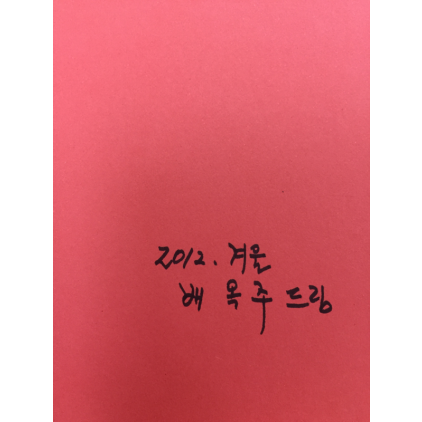 2012. 겨울
배옥주 드림